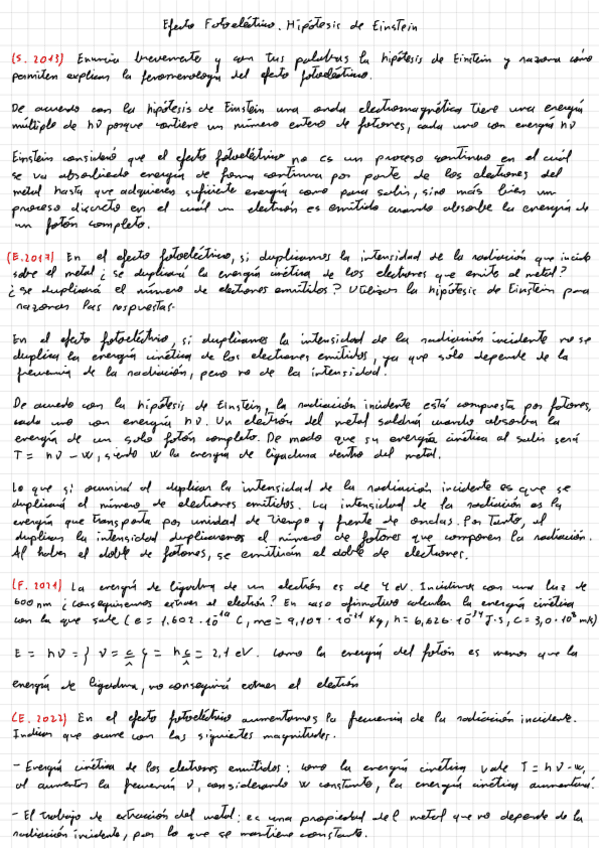 Efecto Fotoeléctrico. Hipótesis de Einstein
(S. 2013) Enuncia brevemente y con tus palabras la hipótesis de Einstein y razona cómo
permiten explicar la fenomenología del efecto fotoeléctrico.
De acuerdo con la hipótesis de Einstein una onda electromagnética tiene una energía
múltiplo de hν porque contiene un número entero de fotones, cada uno con energía hν
Einstein consideró que el efecto fotoeléctrico no es un proceso continuo en el cuál
se va absorbiendo energía de forma continua por parte de los electrones del
metal hasta que adquieren suficiente energía como para salir, sino más bien un
proceso discreto en el cuál un electrón es emitido cuando absorbe la energía de
un fotón completo.
(E.2017) En el efecto fotoeléctrico, si duplicamos la intensidad de la radiación que incide
sobre el metal ¿se duplicará la energía cinética de los electrones que emite el metal?
¿se duplicará el número de electrones emitidos? Utilizar la hipótesis de Einstein para
razonar las respuestas.
En el efecto fotoeléctrico, si duplicamos la intensidad de la radiación incidente no se
duplica la energía cinética de los electrones emitidos, ya que sólo depende de la
frecuencia de la radiación, pero no de la intensidad.
De acuerdo con la hipótesis de Einstein, la radiación incidente está compuesta por fotones,
cada uno con energía hν. Un electrón del metal saldrá cuando absorba la
energía de un solo fotón completo. De modo que su energía cinética al salir será
T = hν - W, siendo W la energía de ligadura dentro del metal.
Lo que si ocurrirá al duplicar la intensidad de la radiación incidente es que se
duplicará el número de electrones emitidos. La intensidad de la radiación es la
energía que transporta por unidad de tiempo y frente de ondas. Por tanto, al
duplicar la intensidad duplicaremos el número de fotones que componen la radiación.
Al haber el doble de fotones, se emitirán el doble de electrones.
(F. 2021) La energía de ligadura de un electrón es de 4 eV. Incidimos con una luz de
600 nm ¿conseguiremos extraer el electrón? En caso afirmativo calcular la energía cinética
con la que sale (e = 1,602·10⁻¹⁹ C, me = 9,109·10⁻³¹ Kg, h = 6,626·10⁻³⁴ J·s, c = 3,0·10⁸ m/s)
E = hν = { ν = c/λ } = h c/λ = 2,1 eV. Como la energía del fotón es menor que la
energía de ligadura, no conseguirá extraer el electrón
(E. 2022) En el efecto fotoeléctrico aumentamos la frecuencia de la radiación incidente.
Indicar que ocurre con las siguientes magnitudes.
- Energía cinética de los electrones emitidos: como la energía cinética vale T = hν - W,
al aumentar la frecuencia ν, considerando W constante, la energía cinética aumentará.
- El trabajo de extracción del metal: es una propiedad del metal que no depende de la
radiación incidente, por lo que se mantiene constante.